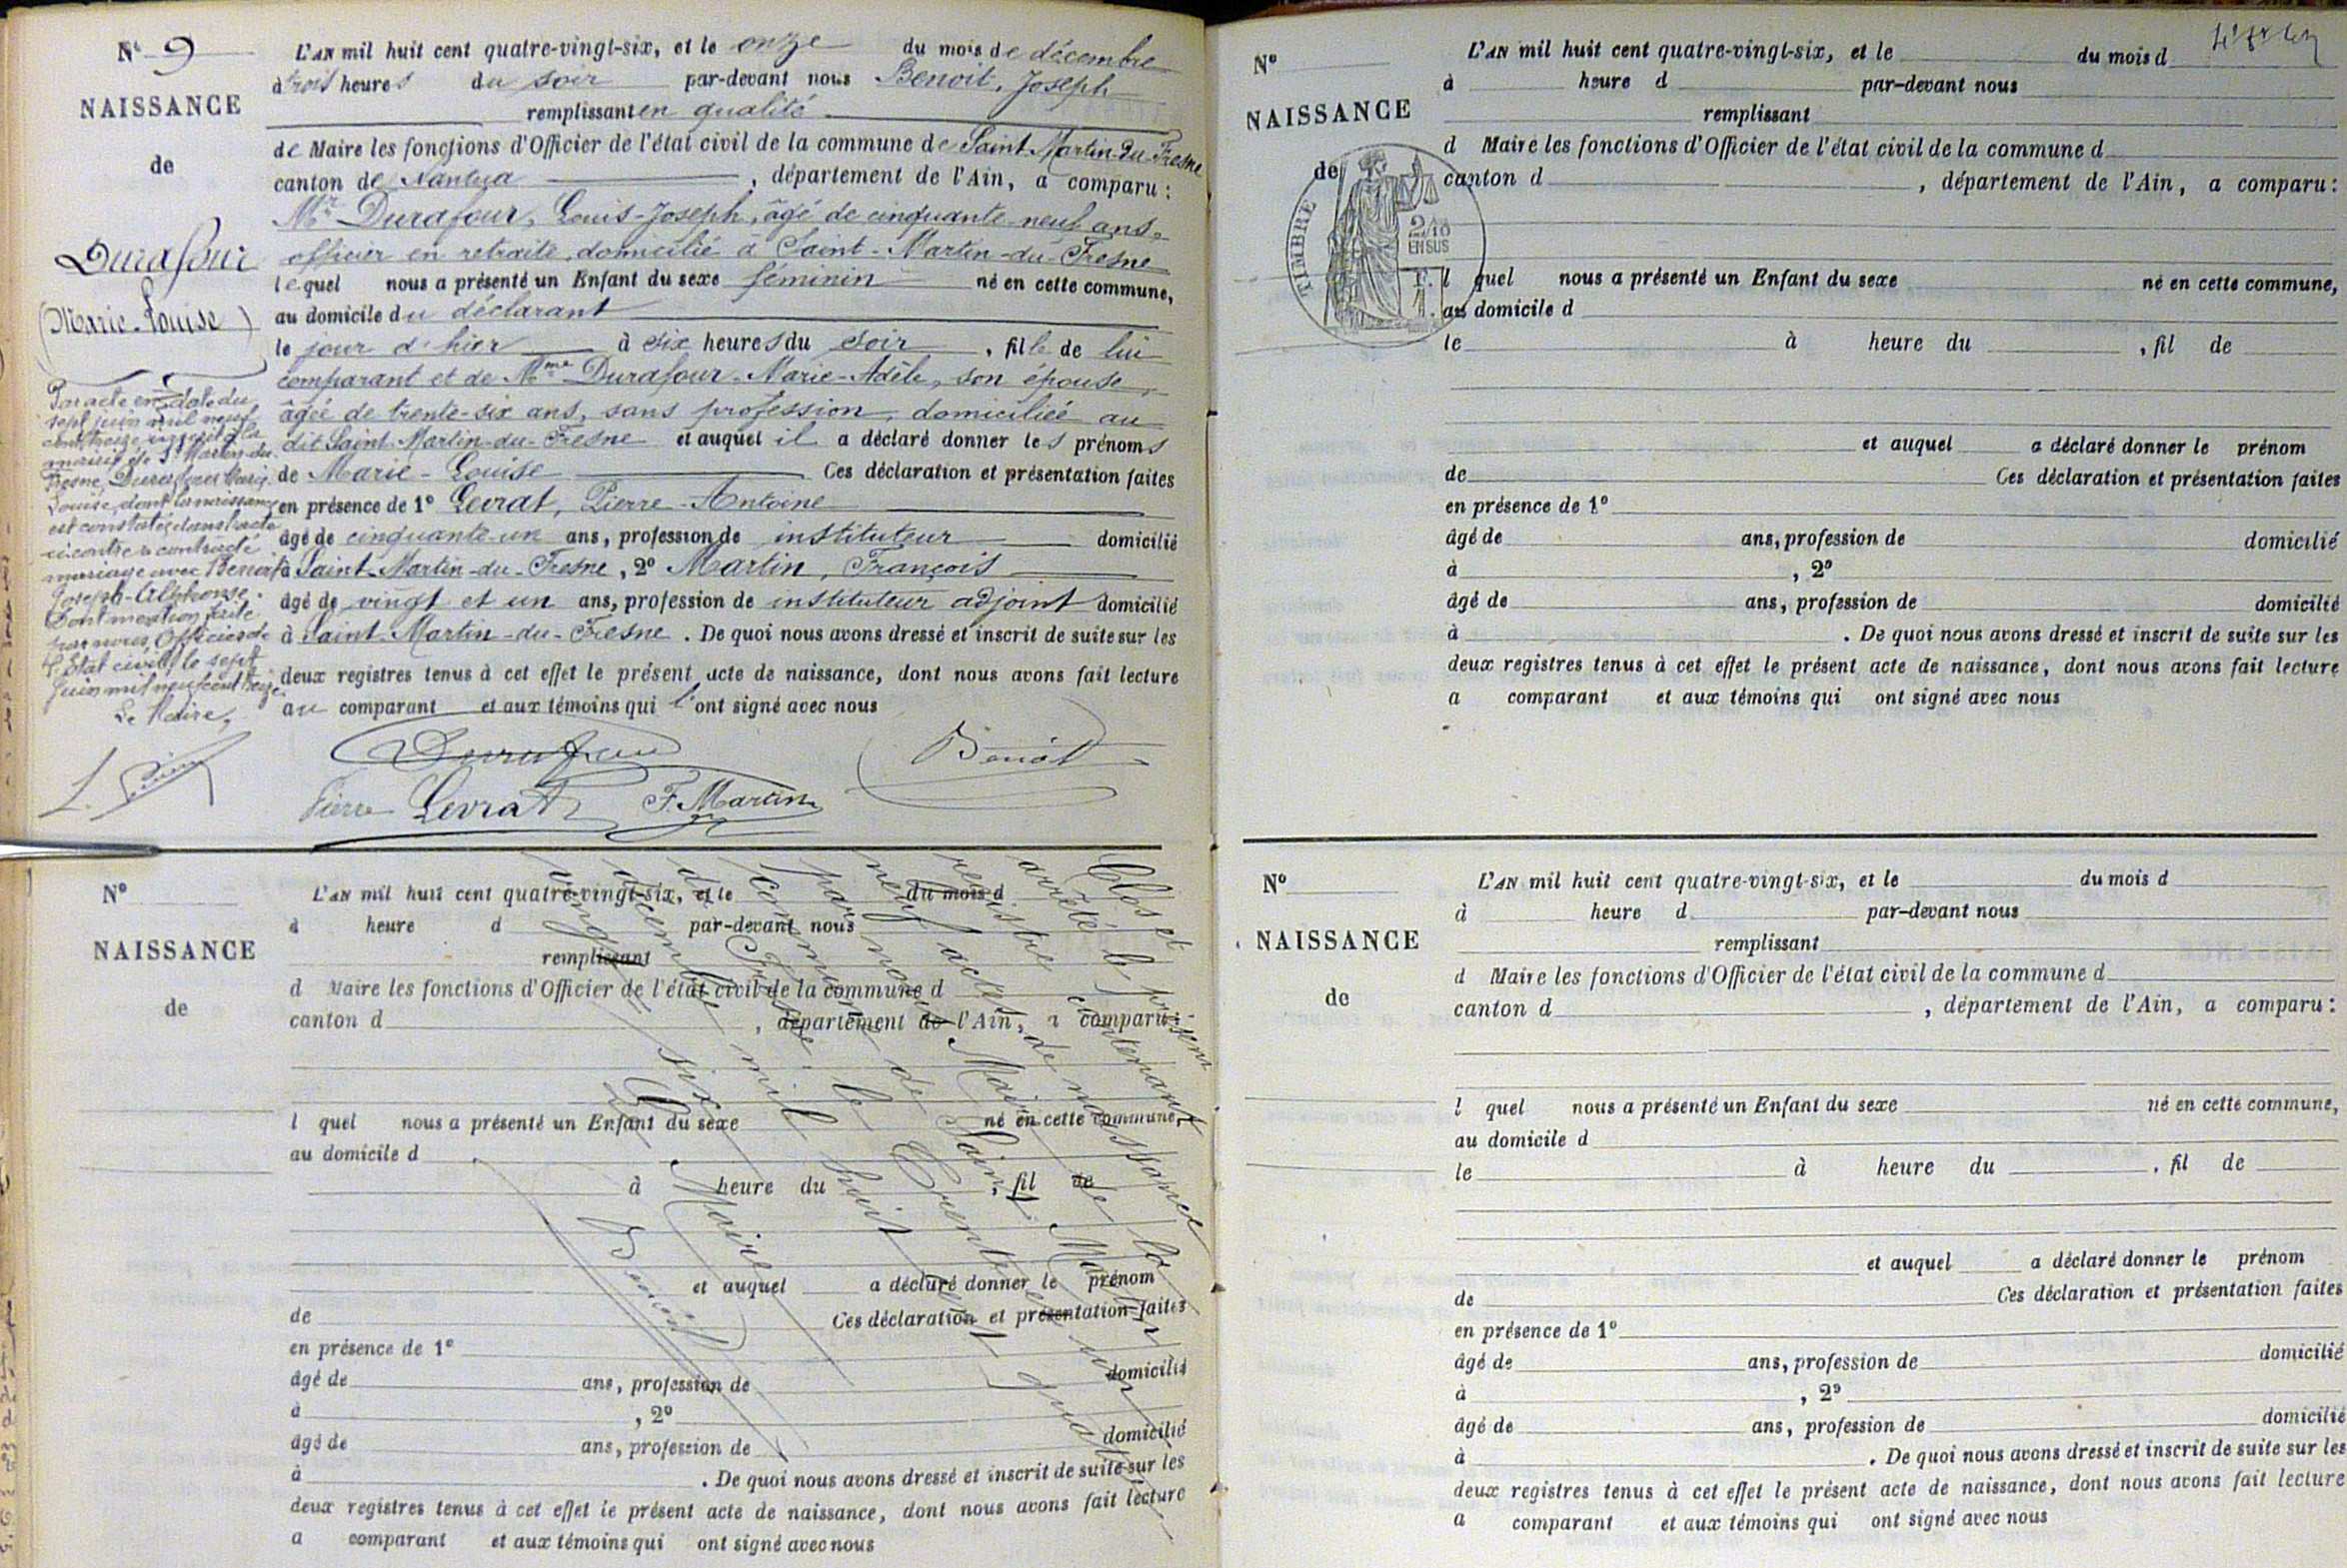 N° 9
NAISSANCE
de
Durafour
(Marie-Louise)
Par acte en date du
sept juin mil neuf
cent treize inscrit à la
mairie de St Martin-du-
Fresne, Durafour Marie
Louise, dont la naissance
est constatée dans l'acte
ci-contre a contracté
mariage avec Benoit
Joseph-Alphonse.
Dont mention faite
par nous, Officier de
l'Etat civil, le sept
Juin mil neuf cent treize
Le Maire,
L'AN mil huit cent quatre-vingt-six, et le onze du mois de décembre
à trois heures du soir par-devant nous Benoit, Joseph
remplissant en qualité
de Maire les fonctions d'Officier de l'état civil de la commune de Saint-Martin-du-Fresne
canton de Nantua, département de l'Ain, a comparu :
Mr Durafour, Louis-Joseph, âgé de cinquante-neuf ans,
officier en retraite, domicilié à Saint-Martin-du-Fresne
lequel nous a présenté un Enfant du sexe féminin né en cette commune,
au domicile du déclarant
le jour d'hier à six heures du soir, fille de lui
comparant et de Mme Durafour-Marie-Adèle, son épouse,
âgée de trente-six ans, sans profession, domiciliée au
dit Saint-Martin-du-Fresne et auquel il a déclaré donner les prénoms
de Marie-Louise Ces déclaration et présentation faites
en présence de 1° Levrat, Pierre-Antoine
âgé de cinquante-un ans, profession de instituteur domicilié
à Saint-Martin-du-Fresne, 2° Martin, François
âgé de vingt et un ans, profession de instituteur adjoint domicilié
à Saint-Martin-du-Fresne. De quoi nous avons dressé et inscrit de suite sur les
deux registres tenus à cet effet le présent acte de naissance, dont nous avons fait lecture
au comparant et aux témoins qui l'ont signé avec nous
Durafour Benoit
Pierre Levrat F. Martin
N°
NAISSANCE
de
L'AN mil huit cent quatre-vingt-six, et le du mois d
à heure d par-devant nous
remplissant
d Maire les fonctions d'Officier de l'état civil de la commune d
canton d , département de l'Ain, a comparu :
l quel nous a présenté un Enfant du sexe né en cette commune,
au domicile d
à heure du , fil de
et auquel a déclaré donner le prénom
de Ces déclaration et présentation faites
en présence de 1°
âgé de ans, profession de domicilié
à , 2°
âgé de ans, profession de domicilié
à . De quoi nous avons dressé et inscrit de suite sur les
deux registres tenus à cet effet le présent acte de naissance, dont nous avons fait lecture
a comparant et aux témoins qui ont signé avec nous
Clos et arrêté le présent
registre contenant
neuf actes de naissance
par nous Maire de la
commune de Saint-Martin
du Fresne, le trente un
décembre mil huit cent quatre
vingt six
Le Maire
Benoit
N°
NAISSANCE
de
TIMBRE
2/10
EN SUS
L'AN mil huit cent quatre-vingt-six, et le du mois d
à heure d par-devant nous
remplissant
d Maire les fonctions d'Officier de l'état civil de la commune d
canton d , département de l'Ain, a comparu :
l quel nous a présenté un Enfant du sexe né en cette commune,
au domicile d
le à heure du , fil de
et auquel a déclaré donner le prénom
de Ces déclaration et présentation faites
en présence de 1°
âgé de ans, profession de domicilié
à , 2°
âgé de ans, profession de domicilié
à . De quoi nous avons dressé et inscrit de suite sur les
deux registres tenus à cet effet le présent acte de naissance, dont nous avons fait lecture
a comparant et aux témoins qui ont signé avec nous
N°
NAISSANCE
de
L'AN mil huit cent quatre-vingt-six, et le du mois d
à heure d par-devant nous
remplissant
d Maire les fonctions d'Officier de l'état civil de la commune d
canton d , département de l'Ain, a comparu :
l quel nous a présenté un Enfant du sexe né en cette commune,
au domicile d
le à heure du , fil de
et auquel a déclaré donner le prénom
de Ces déclaration et présentation faites
en présence de 1°
âgé de ans, profession de domicilié
à , 2°
âgé de ans, profession de domicilié
à . De quoi nous avons dressé et inscrit de suite sur les
deux registres tenus à cet effet le présent acte de naissance, dont nous avons fait lecture
a comparant et aux témoins qui ont signé avec nous